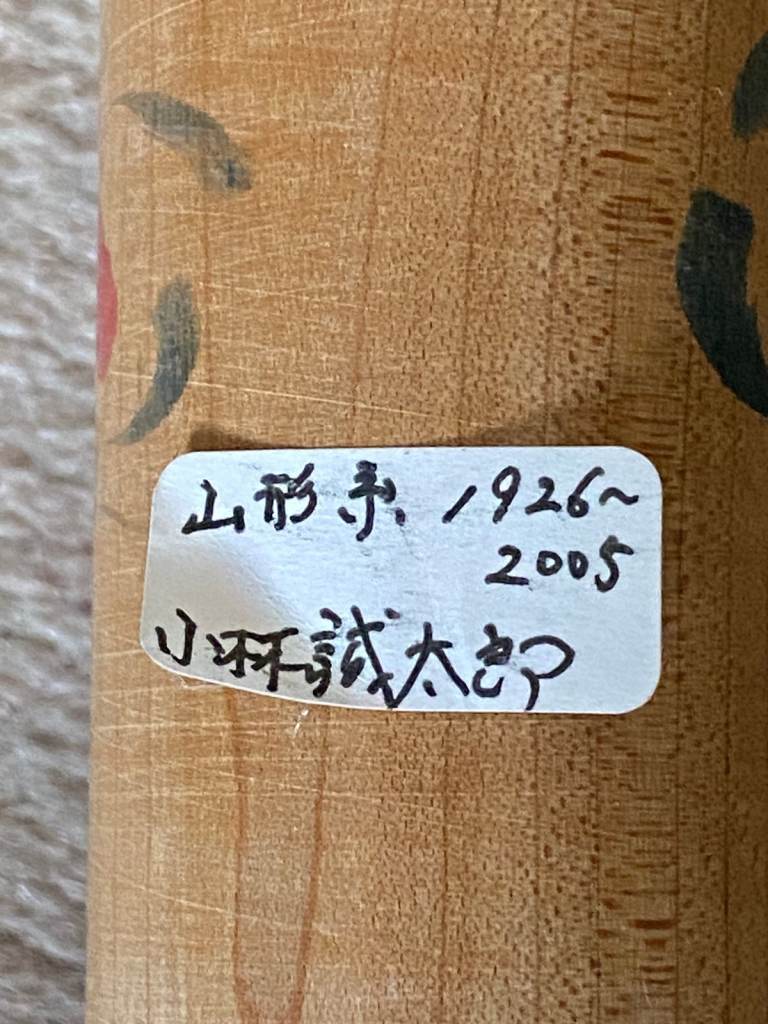 山形系 1926~
2005
小林誠太郎